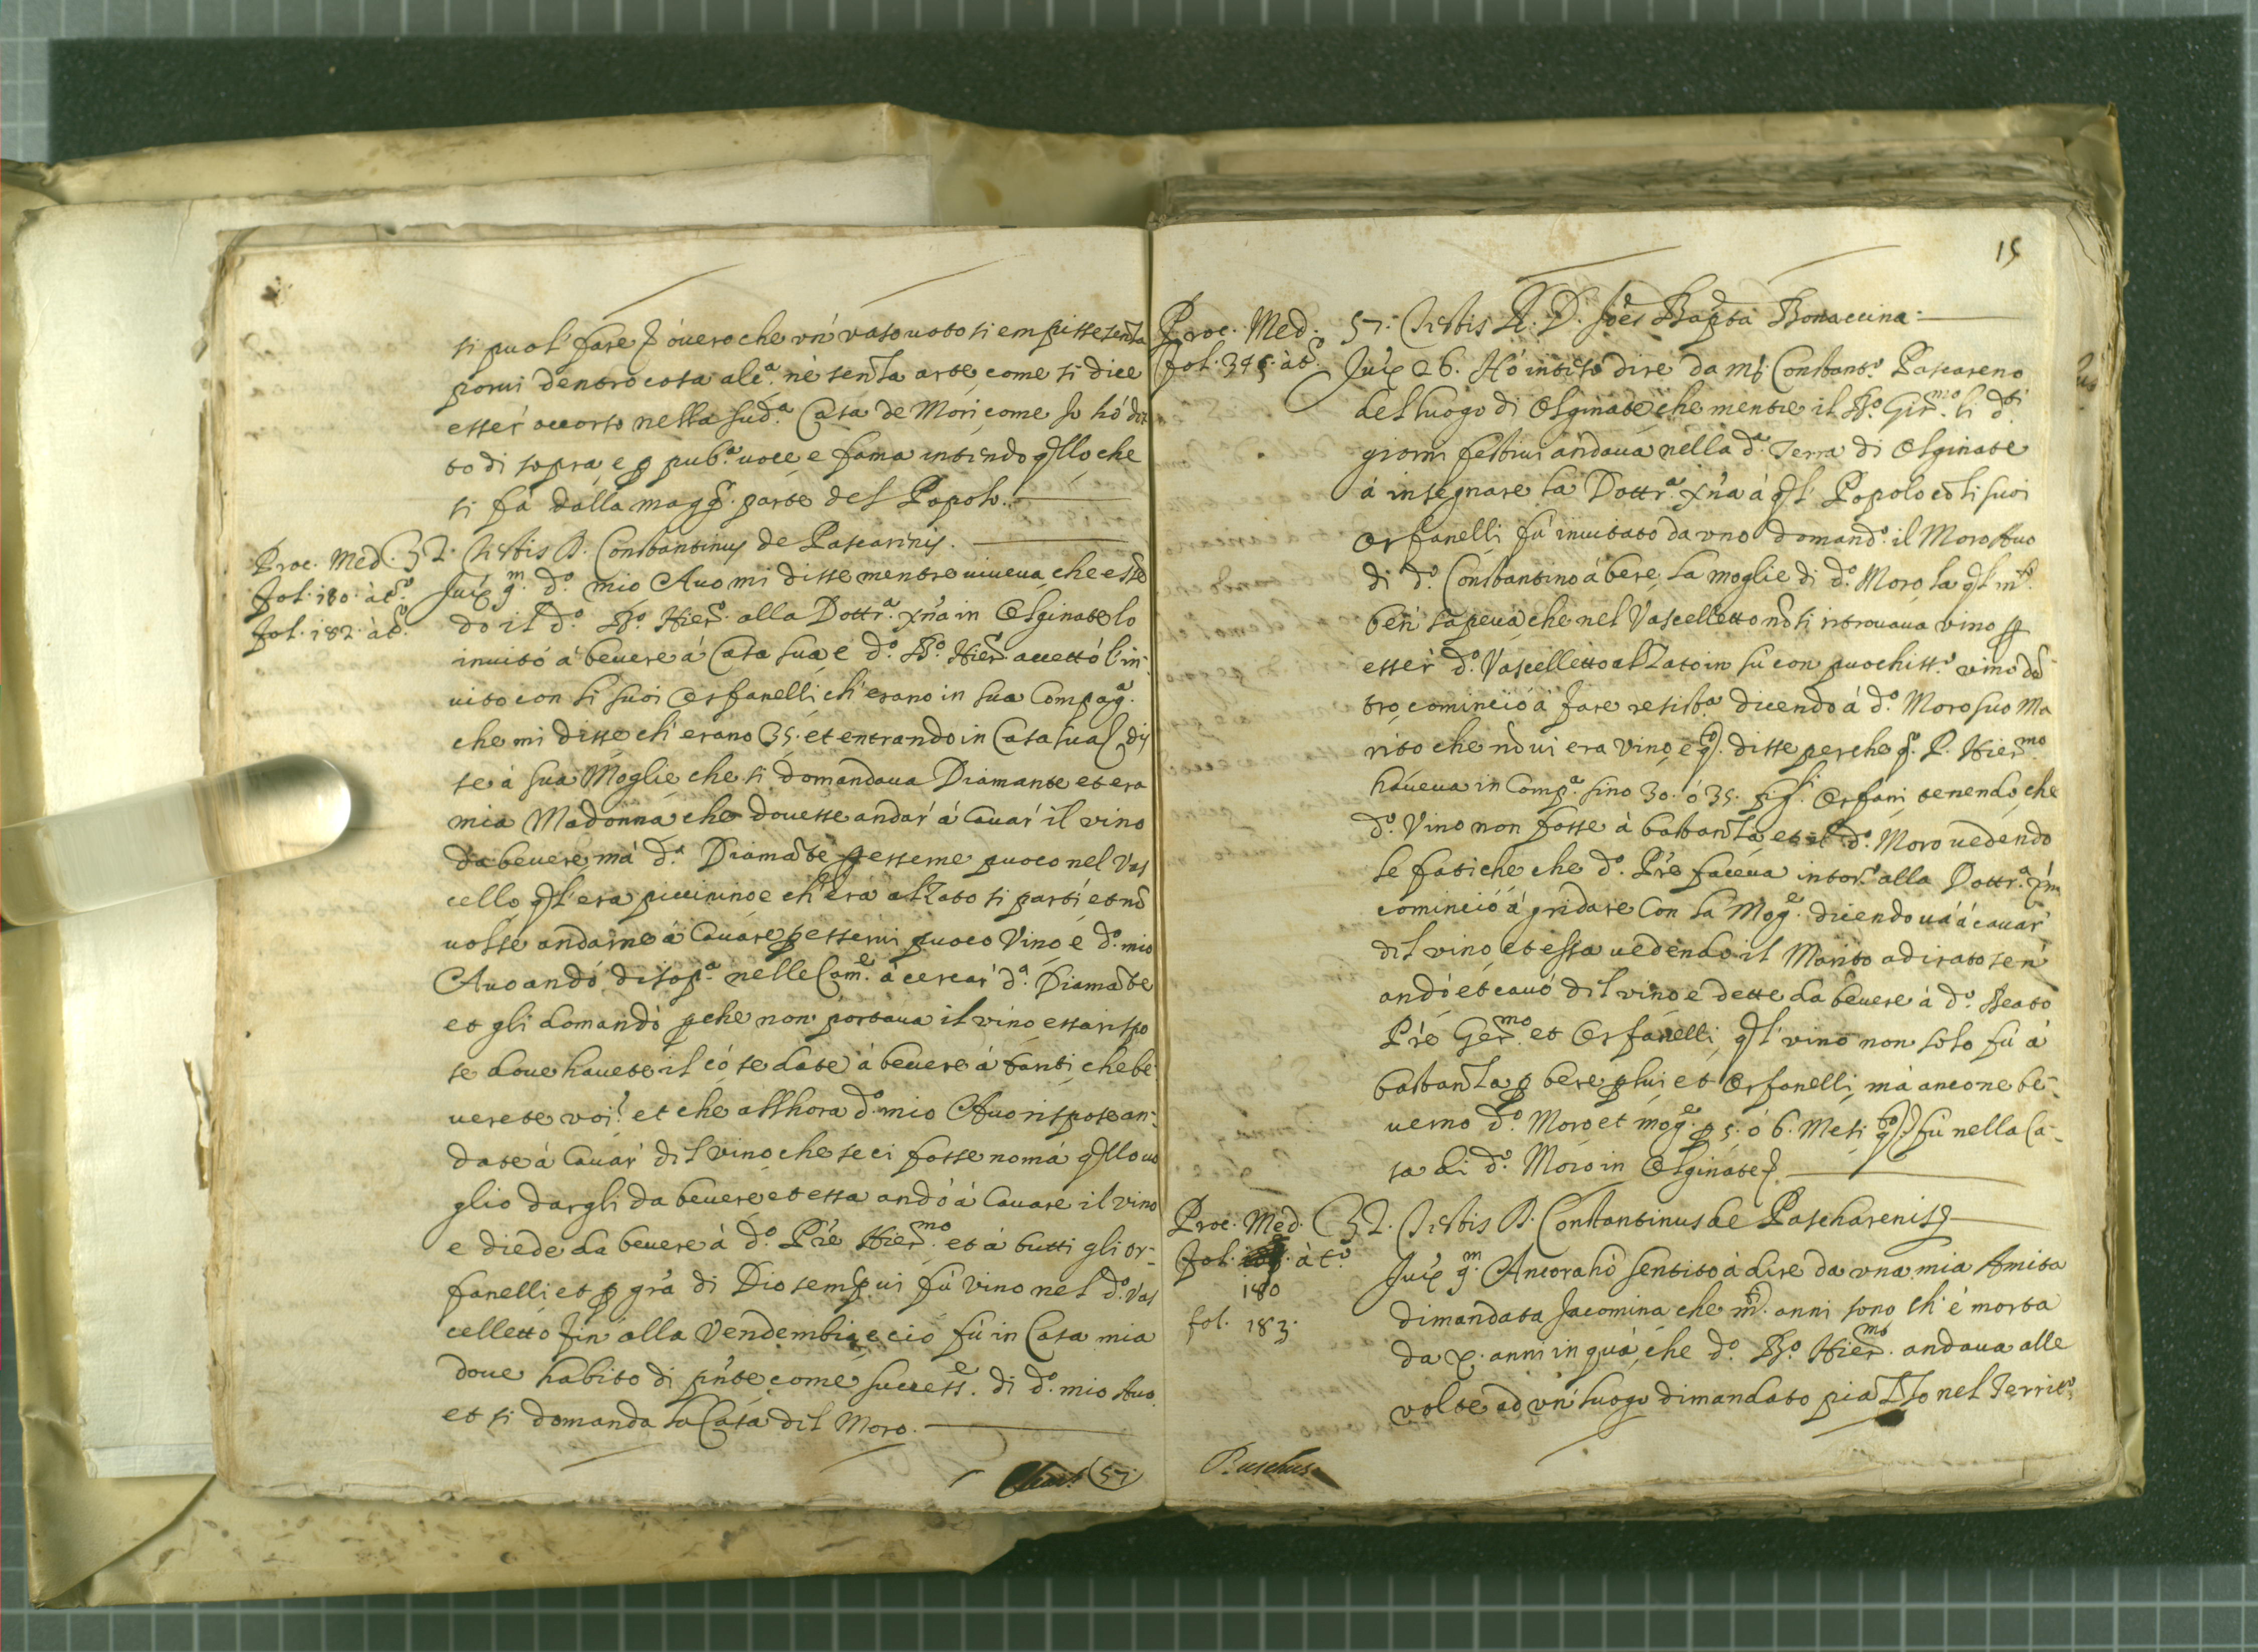 si puol' fare, overo che un' vaso voto si empisse senza
porvi dentro cosa alc.ª né senza arte, come si dice
esser occorso nella sud.ª Casa de Mori, come Jo hó det
to di sopra, e p pub.ª voce, e fama intendo qllo, che
si fá dalla magg.r parte del Popolo.
Proc. Med. 32. Testis D. Constantinus de Pascarinis.
fol. 180. à t.º Jux. 9.m d.º mio Avo mi disse mentre viveva, che essē
fol. 182. à t.º do il d.º B.º Hier. alla Dottr.ª xña in Olginate lo
invitó á bevere á Casa sua, e d.º B.º Hier. accettó l'in-
vito con li suoi Orfanelli, ch'erano in sua Compag.ª
che mi disse ch'erano 35. et entrando in Casa sua, dis
se á sua Moglie che si domandava Diamante et era
mia Madonna che dovesse andar' á Cavar' il vino
da bevere, má d.ª Diamāte p esserne puoco nel Vas
cello, ql'era piccinino e ch'era alzato si partí et nō
volse andarne á Cavare p esservi puoco Vino, é d.º mio
Avo andó di sop.ª nelle Cam.e á cercar' d.ª Diamāte
et gli domandó pche non portava il vino, essa rispo
se dove havete il có se date á bevere á tanti, che be-
verete voi? et che allhora d.º mio Avo rispose an-
date á Cavar' dil vino che se ci fosse nomá qllo vo
glio dargli da bevere, et essa andó á Cavare il vino
e diede da bevere á d.º Prē Hier.mo et á tutti gli or-
fanelli, et p gr̄a di Dio semp. vi fú vino nel d.º Vas
celletto fin alla Vendembia, e ció fú in Casa mia
dove habito di pñte come success.e di d.º mio Avo
et si domanda la Casa dil Moro.
57.
15
Proc. Med. 57. Testis R. D. Joēs Bapta Bonaccina.
fol. 345. à t.º Jux. 26. Hó inteso dire da m.r Constant.º Pascareno
del luogo di Olginate, che mentre il B.º Gir.mo li d.ti
giorni festivi andava nella d.ª Terra di Olginate
á insegnare la Dottr.ª xña á ql' Popolo cō li suoi
Orfanelli, fú invitato da uno domand.º il Moro Avo
di d.º Constantino á bere, la moglie di d.º Moro, la ql
ben' sapeva, che nel Vascelletto nō si ritrovava vino p
esser' d.º Vascelletto alzato in sú con puochiss.º vino dē
tro, cominció á fare resist.ª dicendo á d.º Moro suo Ma
rito che nō vi era vino, e q.to disse perche q.l P. Hier.mo
haveva in Comp.ª sino 30. ó 35. Orfani, tenendo, che
d.º Vino non fosse á bastanza, et d.º Moro vedendo
le fatiche che d.º Prē faceva intor.º alla Dottr.ª xña
cominció á gridare Con la Mog.e dicendo vá á cavar'
dil vino, et essa vedendo il Marito adirato se n'
andó et cavó dil vino e dette da bevere á d.º Beato
Prē Ger.mo et Orfanelli, ql' vino non solo fú á
bastanza p bere p lui et Orfanelli, má ancone be-
verno d.º Moro et mog.e p 5. ó 6. Mesi q.to fú nella Ca-
sa di d.º Moro in Olginate.
Proc. Med. 32. Testis D. Constantinus de Pascharenis
fol. à t.º Jux. 9.m Ancora hó sentito á dire da una mia Amita
180 dimandata Jacomina, che anni sono ch'é morta
fol. 183. da X. anni in quá, che d.º B.º Hier.mo andava alle
volte ad un' luogo dimandato piazzo nel Territ.º